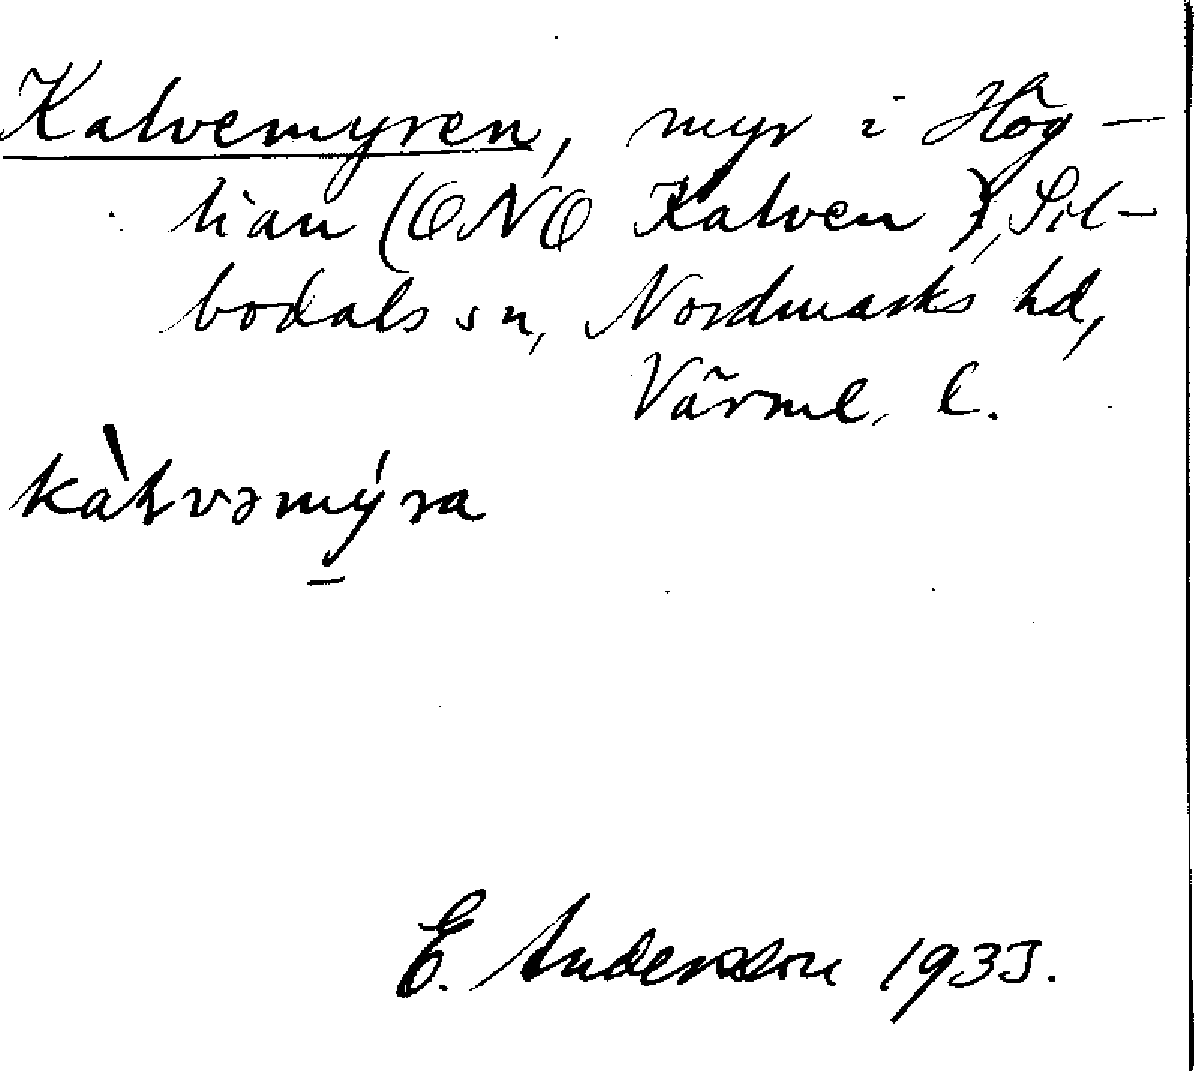 Kalvemyren, myr i Hög-
lian (ONO Kalven), Sil-
bodals sn, Nordmarks hd,
Värml. l.
kàlvəmýra
E. Andersson 1933.